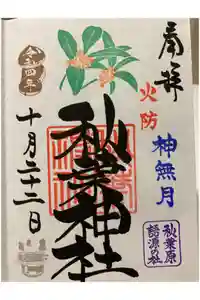 奉拝
火防
神無月
秋葉神社
令和四年
十月二十二日
秋葉原
語源の社